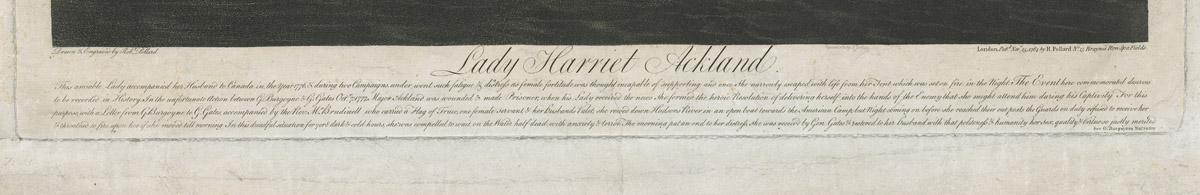 Drawn & Engraved by Robt. Pollard.
London, Pubd. Novr. 15, 1784 by R. Pollard No. 15 Braynes Row Spa Fields.
Lady Harriet Ackland.
This amiable Lady accompanied her Husband to Canada in the year 1776, & during two Campaigns under went such fatigue & distress as female fortitude was thought incapable of supporting and once She narrowly escaped with life from her Tent which was set on fire in the Night. The Event here commemorated deserves
to be recorded in History. In the unfortunate Action between Gl. Burgoyne & Gl. Gates Octr. 7th. 1777, Major Ackland was wounded & made Prisoner, when his Lady received the news She formed the heroic Resolution of delivering herself into the hands of the Enemy that she might attend him during his Captivity. For this
purpose, with a Letter from Gl. Burgoyne to Gl. Gates, accompanied by the Revd. Mr. Brudinell who carried a Flag of Truce, one female servant & her Husband's Valet, she rowed down Hudsons River in an open boat towards the American Camp, but Night coming on before she reached their out posts the Guards on duty refused to receive her
& threatned to fire upon her if she moved till morning. In this dreadful situation for 7 or 8 dark & cold hours, she was compelled to wait on the Water half dead with anxiety & terror. The morning put an end to her distress, She was received by Genl. Gates & restored to her Husband with that politeness & humanity her sex, quality & virtues so justly merited.
See Gl. Burgoynes Narrative